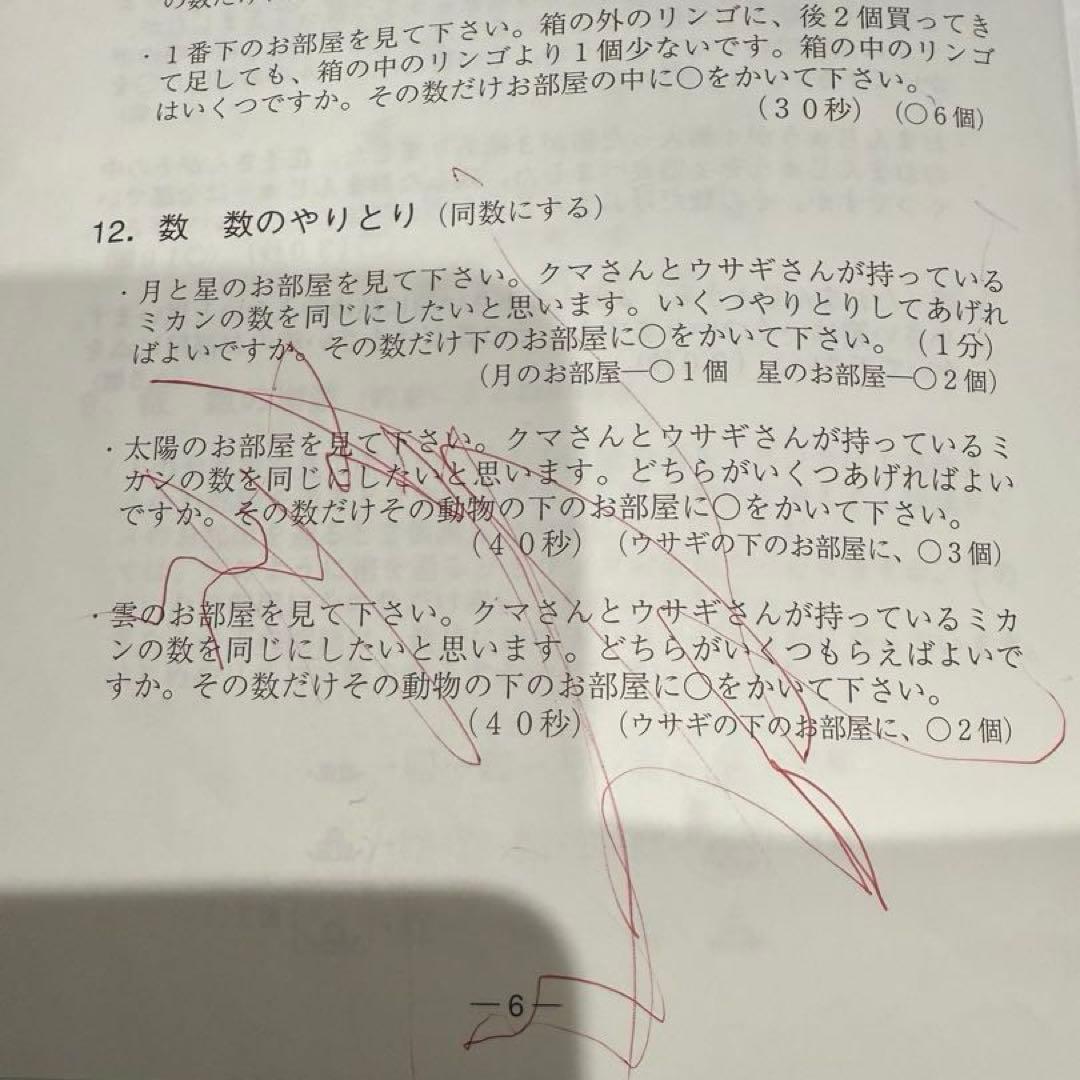 ・1番下のお部屋を見て下さい。箱の外のリンゴに、後2個買ってき
て足しても、箱の中のリンゴより1個少ないです。箱の中のリンゴ
はいくつですか。その数だけお部屋の中に○をかいて下さい。
(30秒) (○6個)
12. 数 数のやりとり(同数にする)
・月と星のお部屋を見て下さい。クマさんとウサギさんが持っている
ミカンの数を同じにしたいと思います。いくつやりとりしてあげれ
ばよいですか。その数だけ下のお部屋に○をかいて下さい。(1分)
(月のお部屋―○1個 星のお部屋―○2個)
・太陽のお部屋を見て下さい。クマさんとウサギさんが持っているミ
カンの数を同じにしたいと思います。どちらがいくつあげればよい
ですか。その数だけその動物の下のお部屋に○をかいて下さい。
(40秒) (ウサギの下のお部屋に、○3個)
・雲のお部屋を見て下さい。クマさんとウサギさんが持っているミカ
ンの数を同じにしたいと思います。どちらがいくつもらえばよいで
すか。その数だけその動物の下のお部屋に○をかいて下さい。
(40秒) (ウサギの下のお部屋に、○2個)
―6―